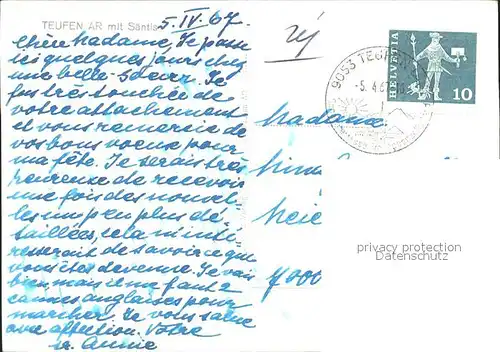 TEUFEN AR mit Säntis
5. IV. 67.
Chère Madame, Je passe
ici quelques jours chez
une belle-soeur. Je
suis très touchée de
votre attachement
et vous remercie de
vos bons voeux pour
ma fête. Je serais très
heureuse de recevoir
une fois des nouvel-
les un peu plus dé-
taillées, cela m'inté-
resserait de savoir ce que
vous êtes devenue. Je vais
bien mais il me faut 2
cannes anglaises pour
marcher. Je vous salue
avec affection. Votre
Annie
9053 TEUFEN
-5. 4.67
HELVETIA
10
Madame
7000
privacy protection
Datenschutz